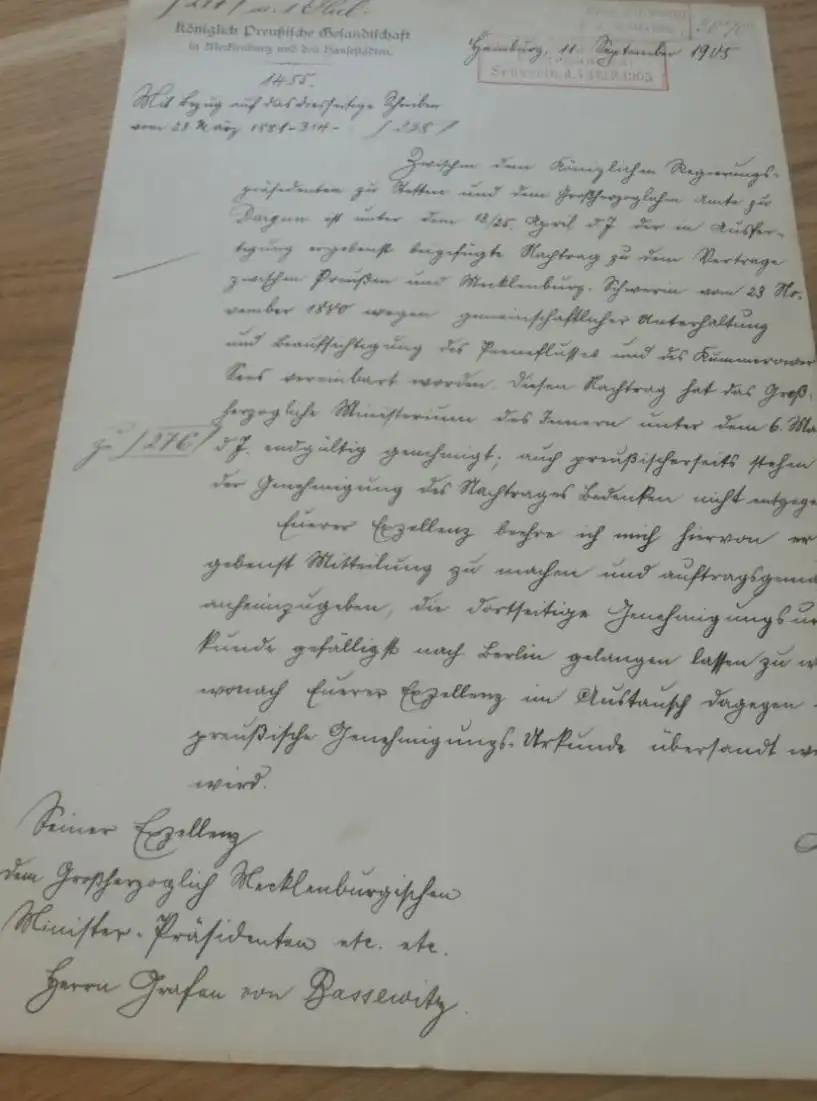 Königlich Preußische Gesandtschaft
in Mecklenburg und den Hansestädten.
Hamburg, 11. September 1905
Schwerin, d. 1905
1455.
Mit Bezug auf das diesseitige Schreiben
vom 23 März 1881 - 314 - [228]
Zwischen dem Königlichen Regierungs-
präsidenten zu Stettin und dem Großherzoglichen Amte zu
Dargun ist unter dem 18/25. April d. J. der in Ausfer-
tigung ergebenst beigefügte Nachtrag zu dem Vertrage
zwischen Preußen und Mecklenburg-Schwerin vom 23 No-
vember 1880 wegen gemeinschaftlicher Unterhaltung
und Beaufsichtigung des Peeneflusses und des Kummerower
Sees vereinbart worden. Diesen Nachtrag hat das Groß-
herzogliche Ministerium des Innern unter dem 6. Ma
zu [276]
d. J. endgültig genehmigt; auch preußischerseits stehen
der Genehmigung des Nachtrages Bedenken nicht entgege
Euerer Exzellenz beehre ich mich hiervon er
gebenst Mitteilung zu machen und auftragsgemä
anheimzugeben, die dortseitige Genehmigungsur
kunde gefälligst nach Berlin gelangen lassen zu w
wonach Euerer Exzellenz im Austausch dagegen
preußische Genehmigungs-Urkunde übersandt we
wird.
Seiner Exzellenz
dem Großherzoglich Mecklenburgischen
Minister-Präsidenten etc. etc.
Herrn Grafen von Bassewitz.